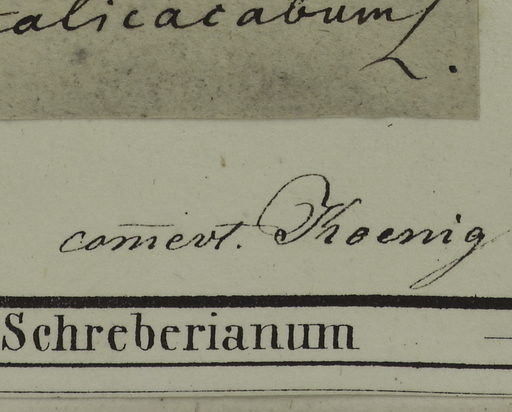 alicacabum L.
com̄evt. Koenig
Schreberianum